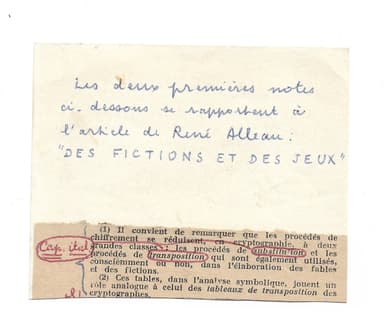 Les deux premières notes
ci-dessous se rapportent à
l'article de René Alleau :
"DES FICTIONS ET DES JEUX"
(1) Il convient de remarquer que les procédés de
chiffrement se réduisent, en cryptographie, à deux
grandes classes : les procédés de substitution et les
Cap. ital
procédés de transposition qui sont également utilisés,
consciemment ou non, dans l'élaboration des fables
et des fictions.
(2) Ces tables, dans l'analyse symbolique, jouent un
rôle analogue à celui des tableaux de transposition des
cryptographes.